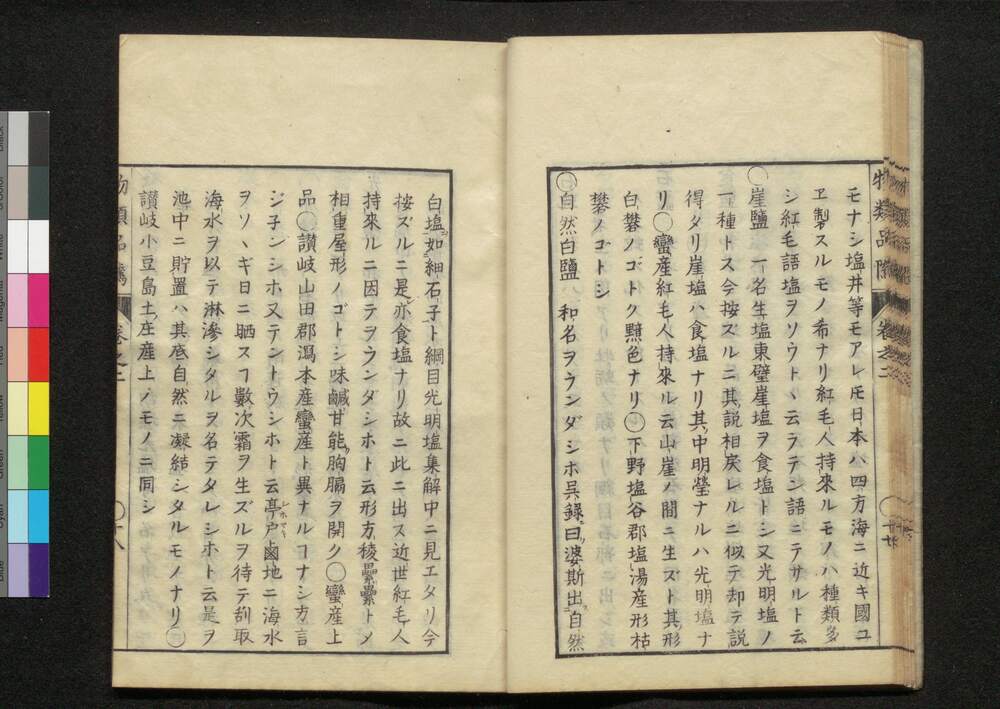 モナシ塩井等モアレ𪜈日本ハ四方海ニ近キ國ユ
ヱ製スルモノ希ナリ紅毛人持來ルモノハ種類多
シ紅毛語塩ヲソウトヽ云ラテン語ニテサルト云
○崖鹽 一名生塩東壁崖塩ヲ食塩トシ又光明塩ノ
一種トス今按ズルニ其説相戻レルニ似テ却テ説
得タリ崖塩ハ食塩ナリ其中明瑩ナルハ光明塩ナ
リ○蠻産紅毛人持來ル云山崖ノ間ニ生ズト其形
白礬ノゴトク黲色ナリ○下野塩谷郡塩湯産形枯
礬ノゴトシ
○自然白鹽 和名ヲウンダシホ呉録曰婆斯出自然
白塩如細石子ト綱目光明塩集解中ニ見エタリ今
按ズルニ是亦食塩ナリ故ニ此ニ出ス近世紅毛人
持來ルニ因テヲウンダシホト云形方稜纍纍トメ
相重屋形ノゴトシ味鹹甘能胸膈ヲ開ク○蠻産上
品○讃岐山田郡潟本産蠻産ト異ナルヿナシ方言
ジ子ンシホ又テントウシホト云亭戸鹵地ニ海水
ヲソヽギ日ニ晒スヿ數次霜ヲ生ズルヲ待テ刮取
海水ヲ以テ淋滲シタルヲ名テタレシホト云是ヲ
池中ニ貯置ハ其底自然ニ凝結シタルモノナリ○
讃岐小豆島土庄産上ノモノニ同シ
物類品隲 卷之二